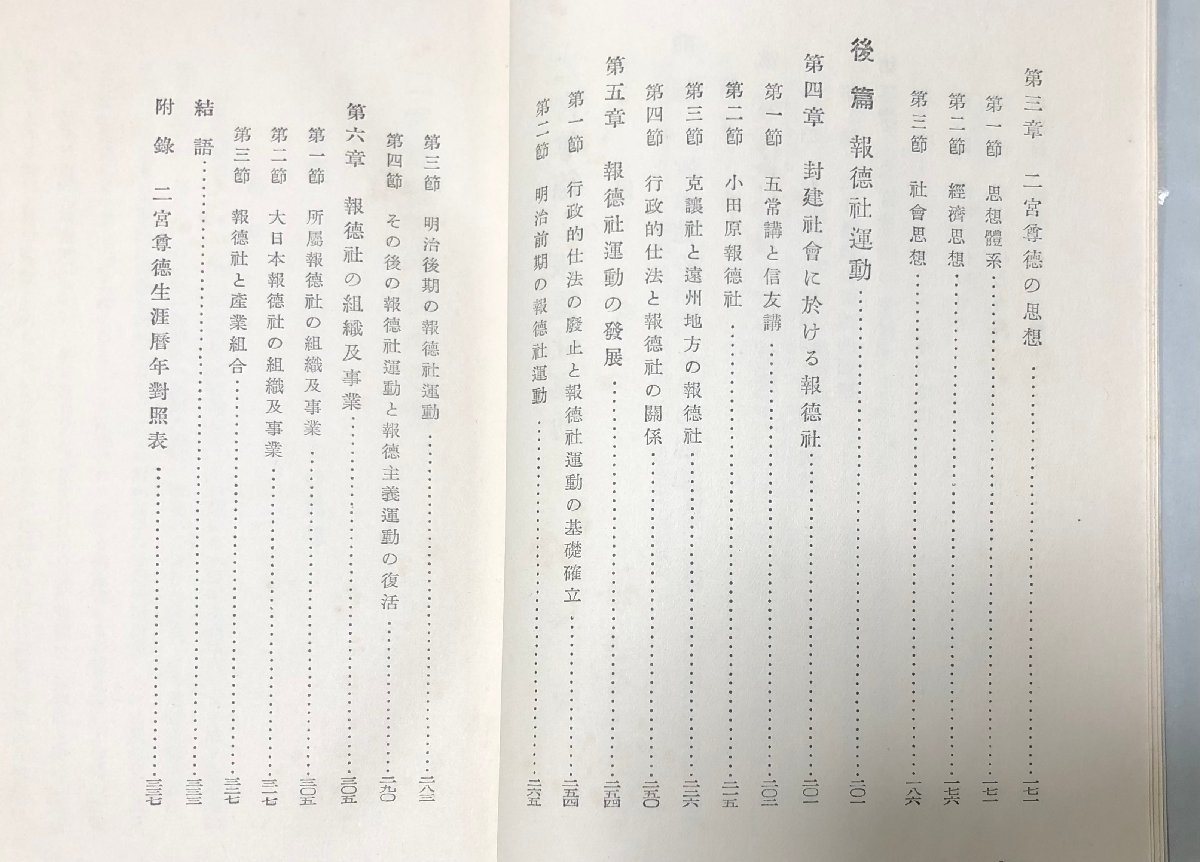 第三章 二宮尊德の思想……一七一
第一節 思想體系……一七一
第二節 經濟思想……一七六
第三節 社會思想……一八六
後篇 報德社運動……二〇一
第四章 封建社會に於ける報德社……二〇一
第一節 五常講と信友講……二〇二
第二節 小田原報德社……二一五
第三節 克讓社と遠州地方の報德社……二二六
第四節 行政的仕法と報德社の關係……二五〇
第五章 報德社運動の發展……二五四
第一節 行政的仕法の廢止と報德社運動の基礎確立……二五四
第二節 明治前期の報德社運動……二六五
第三節 明治後期の報德社運動……二八三
第四節 その後の報德社運動と報德主義運動の復活……二九〇
第六章 報德社の組織及事業……三〇五
第一節 所屬報德社の組織及事業……三〇五
第二節 大日本報德社の組織及事業……三一七
第三節 報德社と產業組合……三二七
結語……三三三
附錄 二宮尊德生涯曆年對照表……三三七